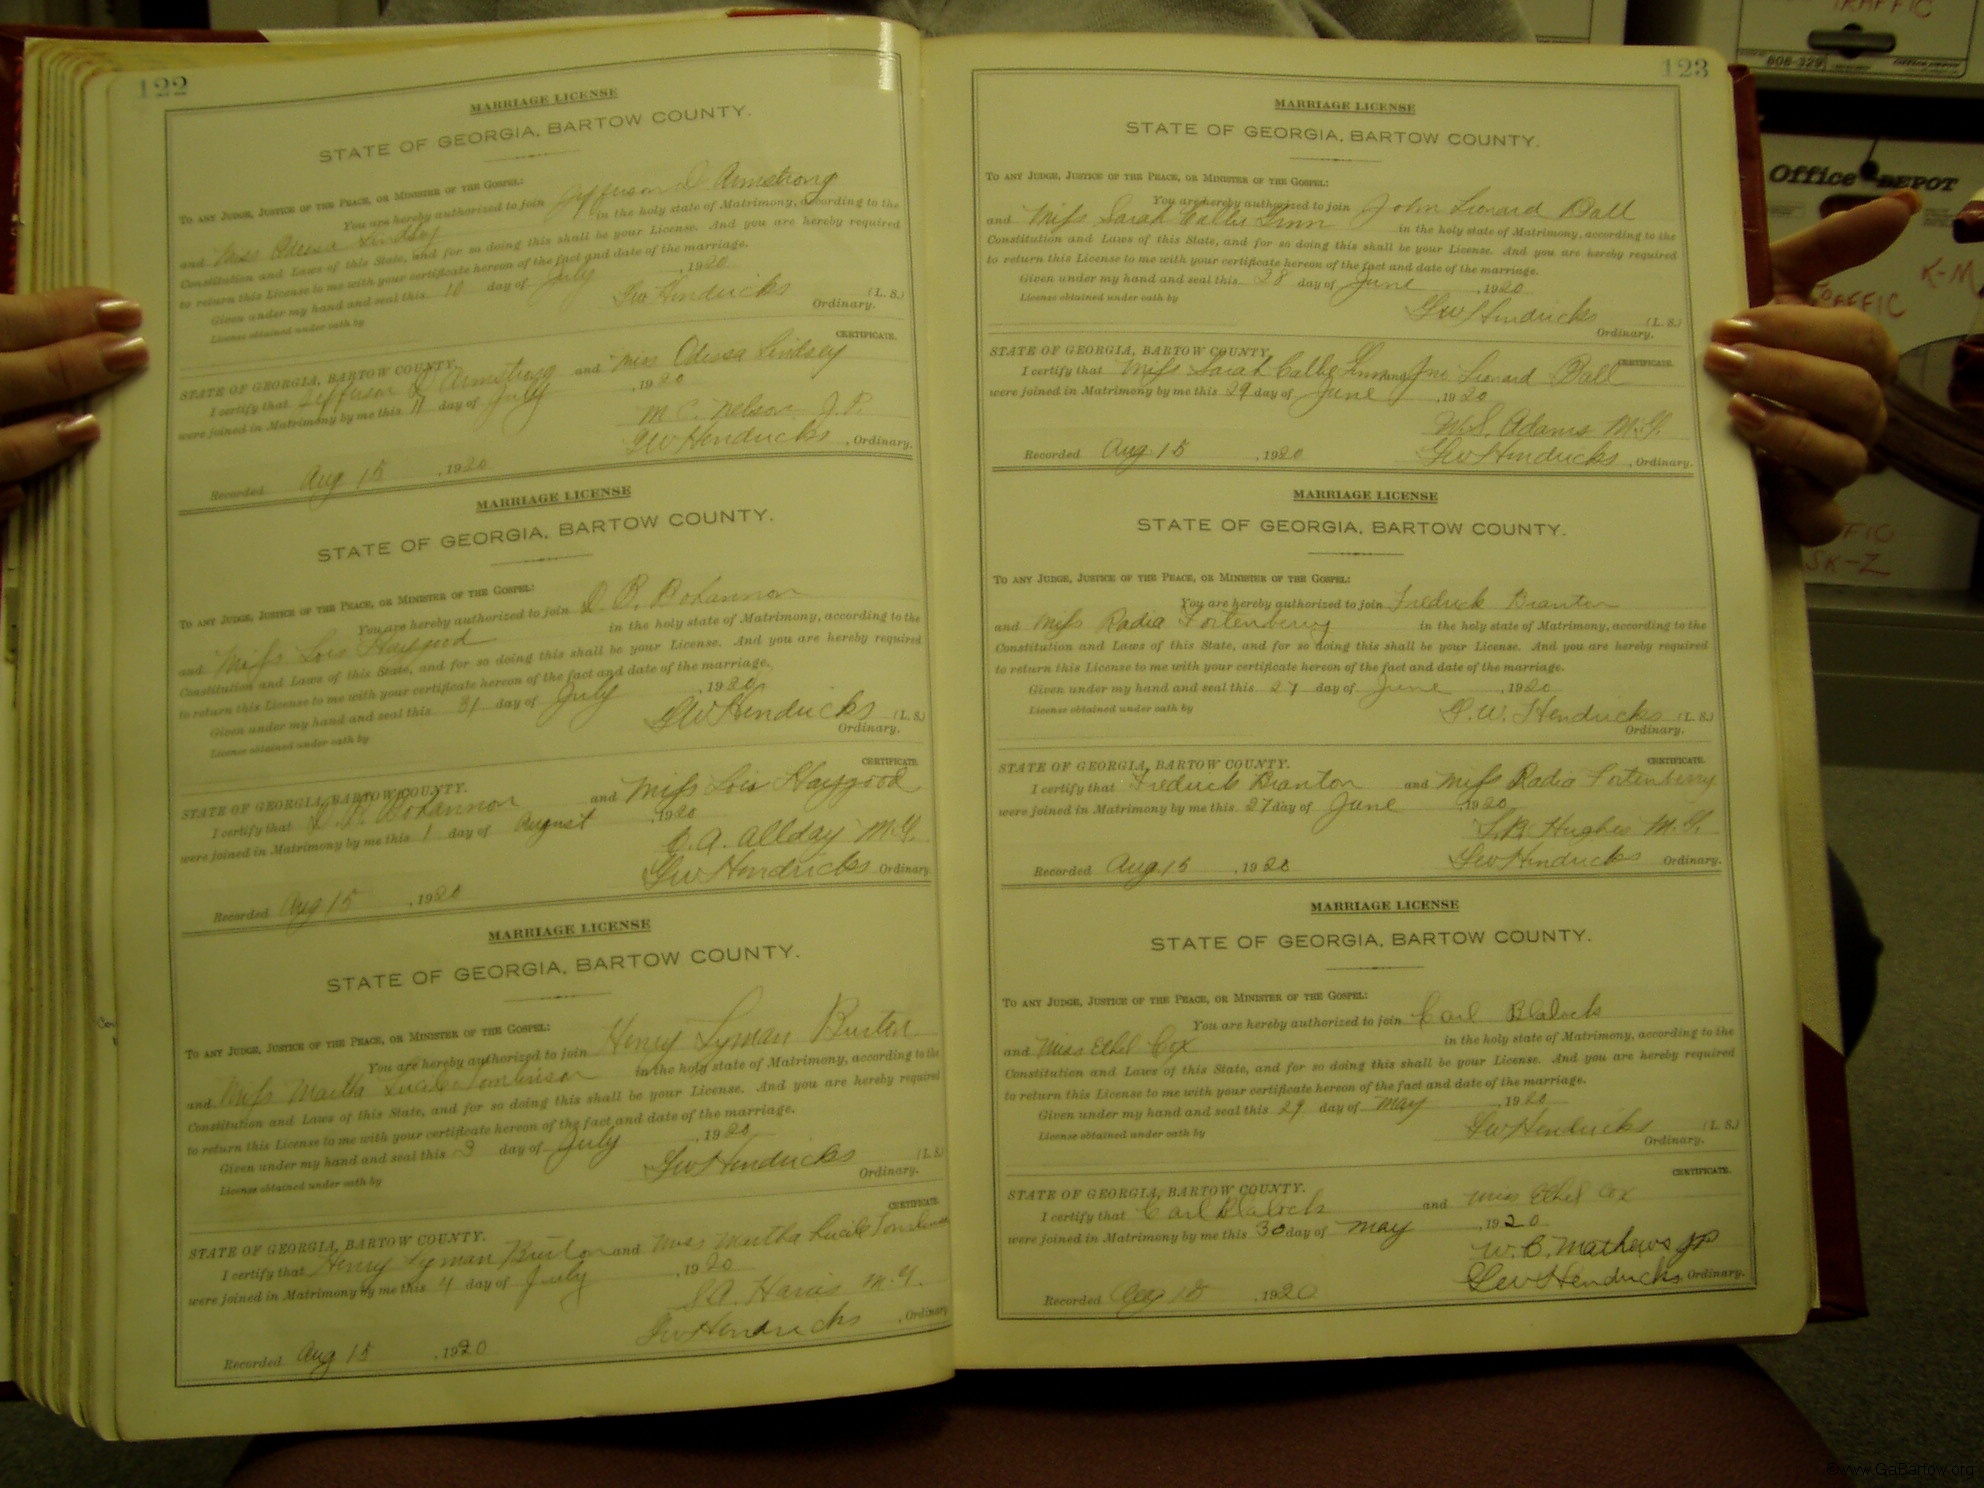 122
MARRIAGE LICENSE
STATE OF GEORGIA, BARTOW COUNTY.
TO ANY JUDGE, JUSTICE OF THE PEACE, OR MINISTER OF THE GOSPEL:
You are hereby authorized to join Jefferson D Armstrong
and Miss Odessa Lindsey in the holy state of Matrimony, according to the
Constitution and Laws of this State, and for so doing this shall be your License. And you are hereby required
to return this License to me with your certificate hereon of the fact and date of the marriage.
Given under my hand and seal this 10 day of July, 1920
License obtained under oath by Geo Hendricks (L. S.)
Ordinary.
CERTIFICATE.
STATE OF GEORGIA, BARTOW COUNTY.
I certify that Jefferson D Armstrong and Miss Odessa Lindsey
were joined in Matrimony by me this 11 day of July, 1920
M. C. Nelson J. P.
Recorded Aug 15, 1920 Geo Hendricks, Ordinary.
MARRIAGE LICENSE
STATE OF GEORGIA, BARTOW COUNTY.
TO ANY JUDGE, JUSTICE OF THE PEACE, OR MINISTER OF THE GOSPEL:
You are hereby authorized to join D. R. Bohannon
and Miss Lois Haygood in the holy state of Matrimony, according to the
Constitution and Laws of this State, and for so doing this shall be your License. And you are hereby required
to return this License to me with your certificate hereon of the fact and date of the marriage.
Given under my hand and seal this 31 day of July, 1920
License obtained under oath by GW Hendricks (L. S.)
Ordinary.
CERTIFICATE.
STATE OF GEORGIA, BARTOW COUNTY.
I certify that D. R. Bohannon and Miss Lois Haygood
were joined in Matrimony by me this 1 day of August, 1920
A. Allday M.G.
Recorded Aug 15, 1920 GW Hendricks Ordinary.
MARRIAGE LICENSE
STATE OF GEORGIA, BARTOW COUNTY.
TO ANY JUDGE, JUSTICE OF THE PEACE, OR MINISTER OF THE GOSPEL:
You are hereby authorized to join Henry Lyman Burton
and Miss Martha Lucile Tomlinson in the holy state of Matrimony, according to the
Constitution and Laws of this State, and for so doing this shall be your License. And you are hereby required
to return this License to me with your certificate hereon of the fact and date of the marriage.
Given under my hand and seal this 3 day of July, 1920
License obtained under oath by GW Hendricks (L. S.)
Ordinary.
CERTIFICATE.
STATE OF GEORGIA, BARTOW COUNTY.
I certify that Henry Lyman Burton and Miss Martha Lucile Tomlinson
were joined in Matrimony by me this 4 day of July, 1920
S. A. Harris M.G.
GW Hendricks, Ordinary
Recorded Aug 15, 1920
123
MARRIAGE LICENSE
STATE OF GEORGIA, BARTOW COUNTY.
TO ANY JUDGE, JUSTICE OF THE PEACE, OR MINISTER OF THE GOSPEL:
You are hereby authorized to join John Leonard Ball
and Miss Sarah Callie Linn in the holy state of Matrimony, according to the
Constitution and Laws of this State, and for so doing this shall be your License. And you are hereby required
to return this License to me with your certificate hereon of the fact and date of the marriage.
Given under my hand and seal this 28 day of June, 1920
License obtained under oath by GW Hendricks (L. S.)
Ordinary.
CERTIFICATE.
STATE OF GEORGIA, BARTOW COUNTY.
I certify that Miss Sarah Callie Linn and Jno Leonard Ball
were joined in Matrimony by me this 29 day of June, 1920
W. S. Adams M.G.
Recorded Aug 15, 1920 GW Hendricks, Ordinary.
MARRIAGE LICENSE
STATE OF GEORGIA, BARTOW COUNTY.
TO ANY JUDGE, JUSTICE OF THE PEACE, OR MINISTER OF THE GOSPEL:
You are hereby authorized to join Fredrick Branton
and Miss Radia Fortenberry in the holy state of Matrimony, according to the
Constitution and Laws of this State, and for so doing this shall be your License. And you are hereby required
to return this License to me with your certificate hereon of the fact and date of the marriage.
Given under my hand and seal this 27 day of June, 1920
License obtained under oath by G. W. Hendricks (L. S.)
Ordinary.
CERTIFICATE.
STATE OF GEORGIA, BARTOW COUNTY.
I certify that Fredrick Branton and Miss Radia Fortenberry
were joined in Matrimony by me this 27 day of June, 1920
Hughes M.G.
Recorded Aug 15, 1920 GW Hendricks Ordinary.
MARRIAGE LICENSE
STATE OF GEORGIA, BARTOW COUNTY.
TO ANY JUDGE, JUSTICE OF THE PEACE, OR MINISTER OF THE GOSPEL:
You are hereby authorized to join Carl Blalock
and Miss Ethel Cox in the holy state of Matrimony, according to the
Constitution and Laws of this State, and for so doing this shall be your License. And you are hereby required
to return this License to me with your certificate hereon of the fact and date of the marriage.
Given under my hand and seal this 29 day of May, 1920
License obtained under oath by GW Hendricks (L. S.)
Ordinary.
CERTIFICATE.
STATE OF GEORGIA, BARTOW COUNTY.
I certify that Carl Blalock and Miss Ethel Cox
were joined in Matrimony by me this 30 day of May, 1920
W. C. Mathews JP
GW Hendricks Ordinary.
Recorded Aug 15, 1920
TRAFFIC
608-329 OFFICE DEPOT
Office DEPOT
K-M
TRAFFIC
SK-Z
©www.GaBartow.org